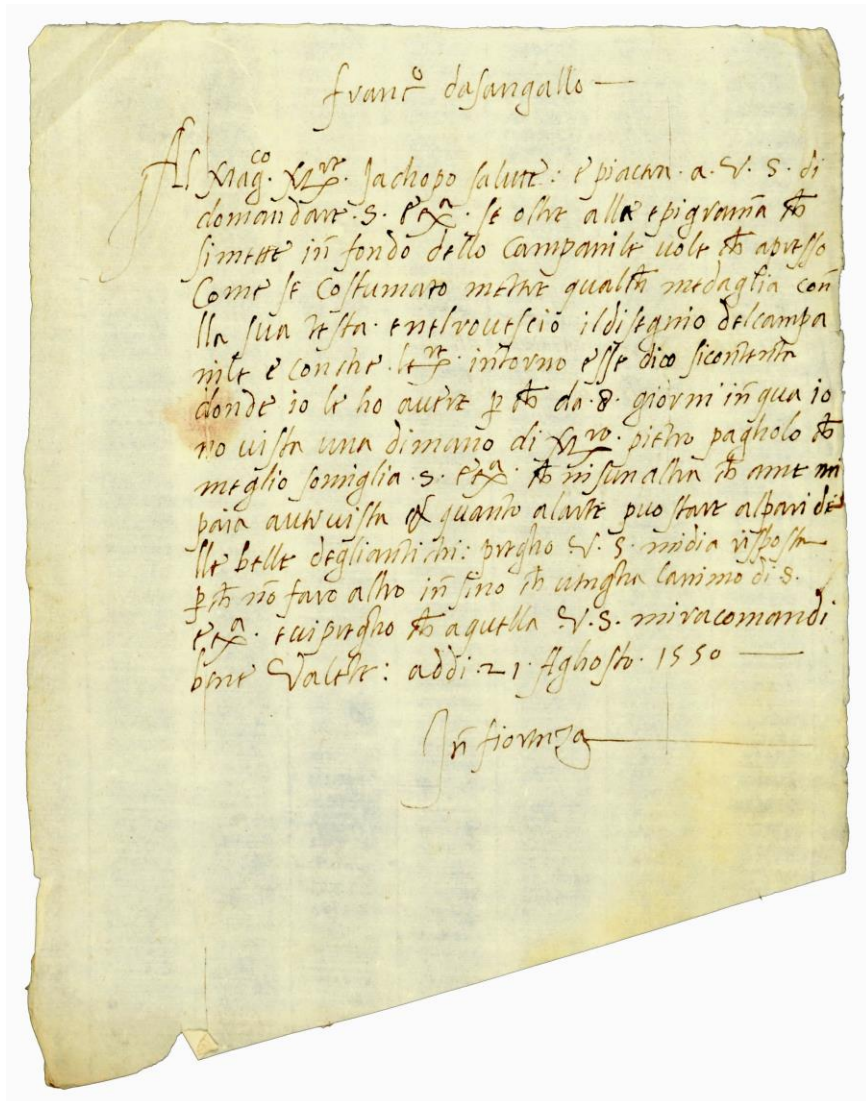 franc.º dasangallo —
Al Mag.co M.re Jachopo salute: e piacera. a. V. S. di
domandare. S. Ex.a se oltre alla epigrama ch
simette in fondo dello Campanile uole ch apresso
Come se Costumato mettere qualch medaglia con
lla sua testa. enelrouescio ildisegnio delcampa
nile e conche le.re intorno esse dico sicontenta
donde io le ho auere p ch da .8. giorni in qua io
no uista una dimano di M.ro pietro pagholo ch
meglio somiglia .S. Ex.a ch nisun altra ch ame mi
paia auer uista & quanto alarte puo stare alpari de
lle belle degliantichi: pregho V. S. midia risposta
p ch no faro altro in sino ch uengha lanimo di S.
Ex.a. e uipregho ch aquella V. S. miracomandi
bene Valete: addi .21. Aghosto. 1550 —
In fiorenza